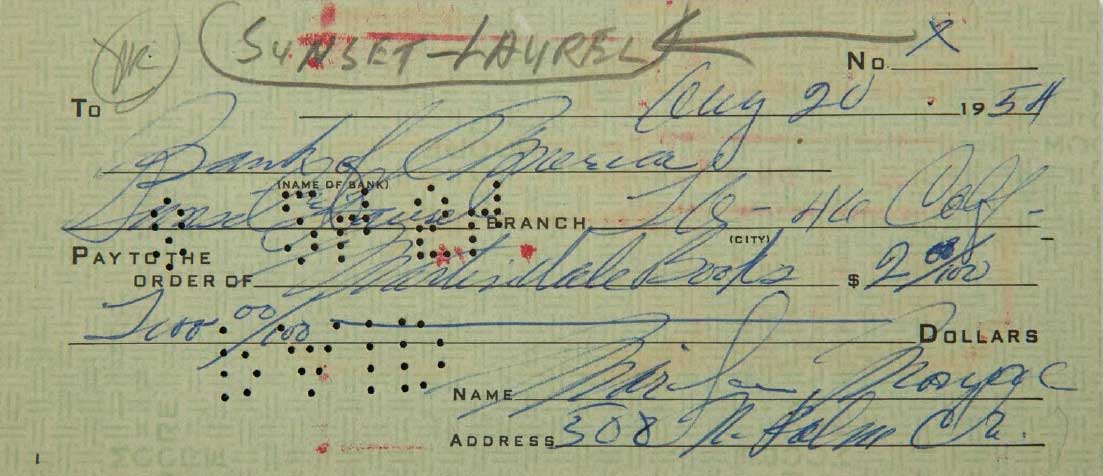 SUNSET-LAUREL
No. X
Aug 20 1954
To
Bank of America
(NAME OF BANK)
Sunset Laurel BRANCH Calif-
(CITY)
PAY TO THE
ORDER OF Martindale Books $ 2 00/100
Two 00/100 DOLLARS
NAME
ADDRESS 508 N. Palm Dr.